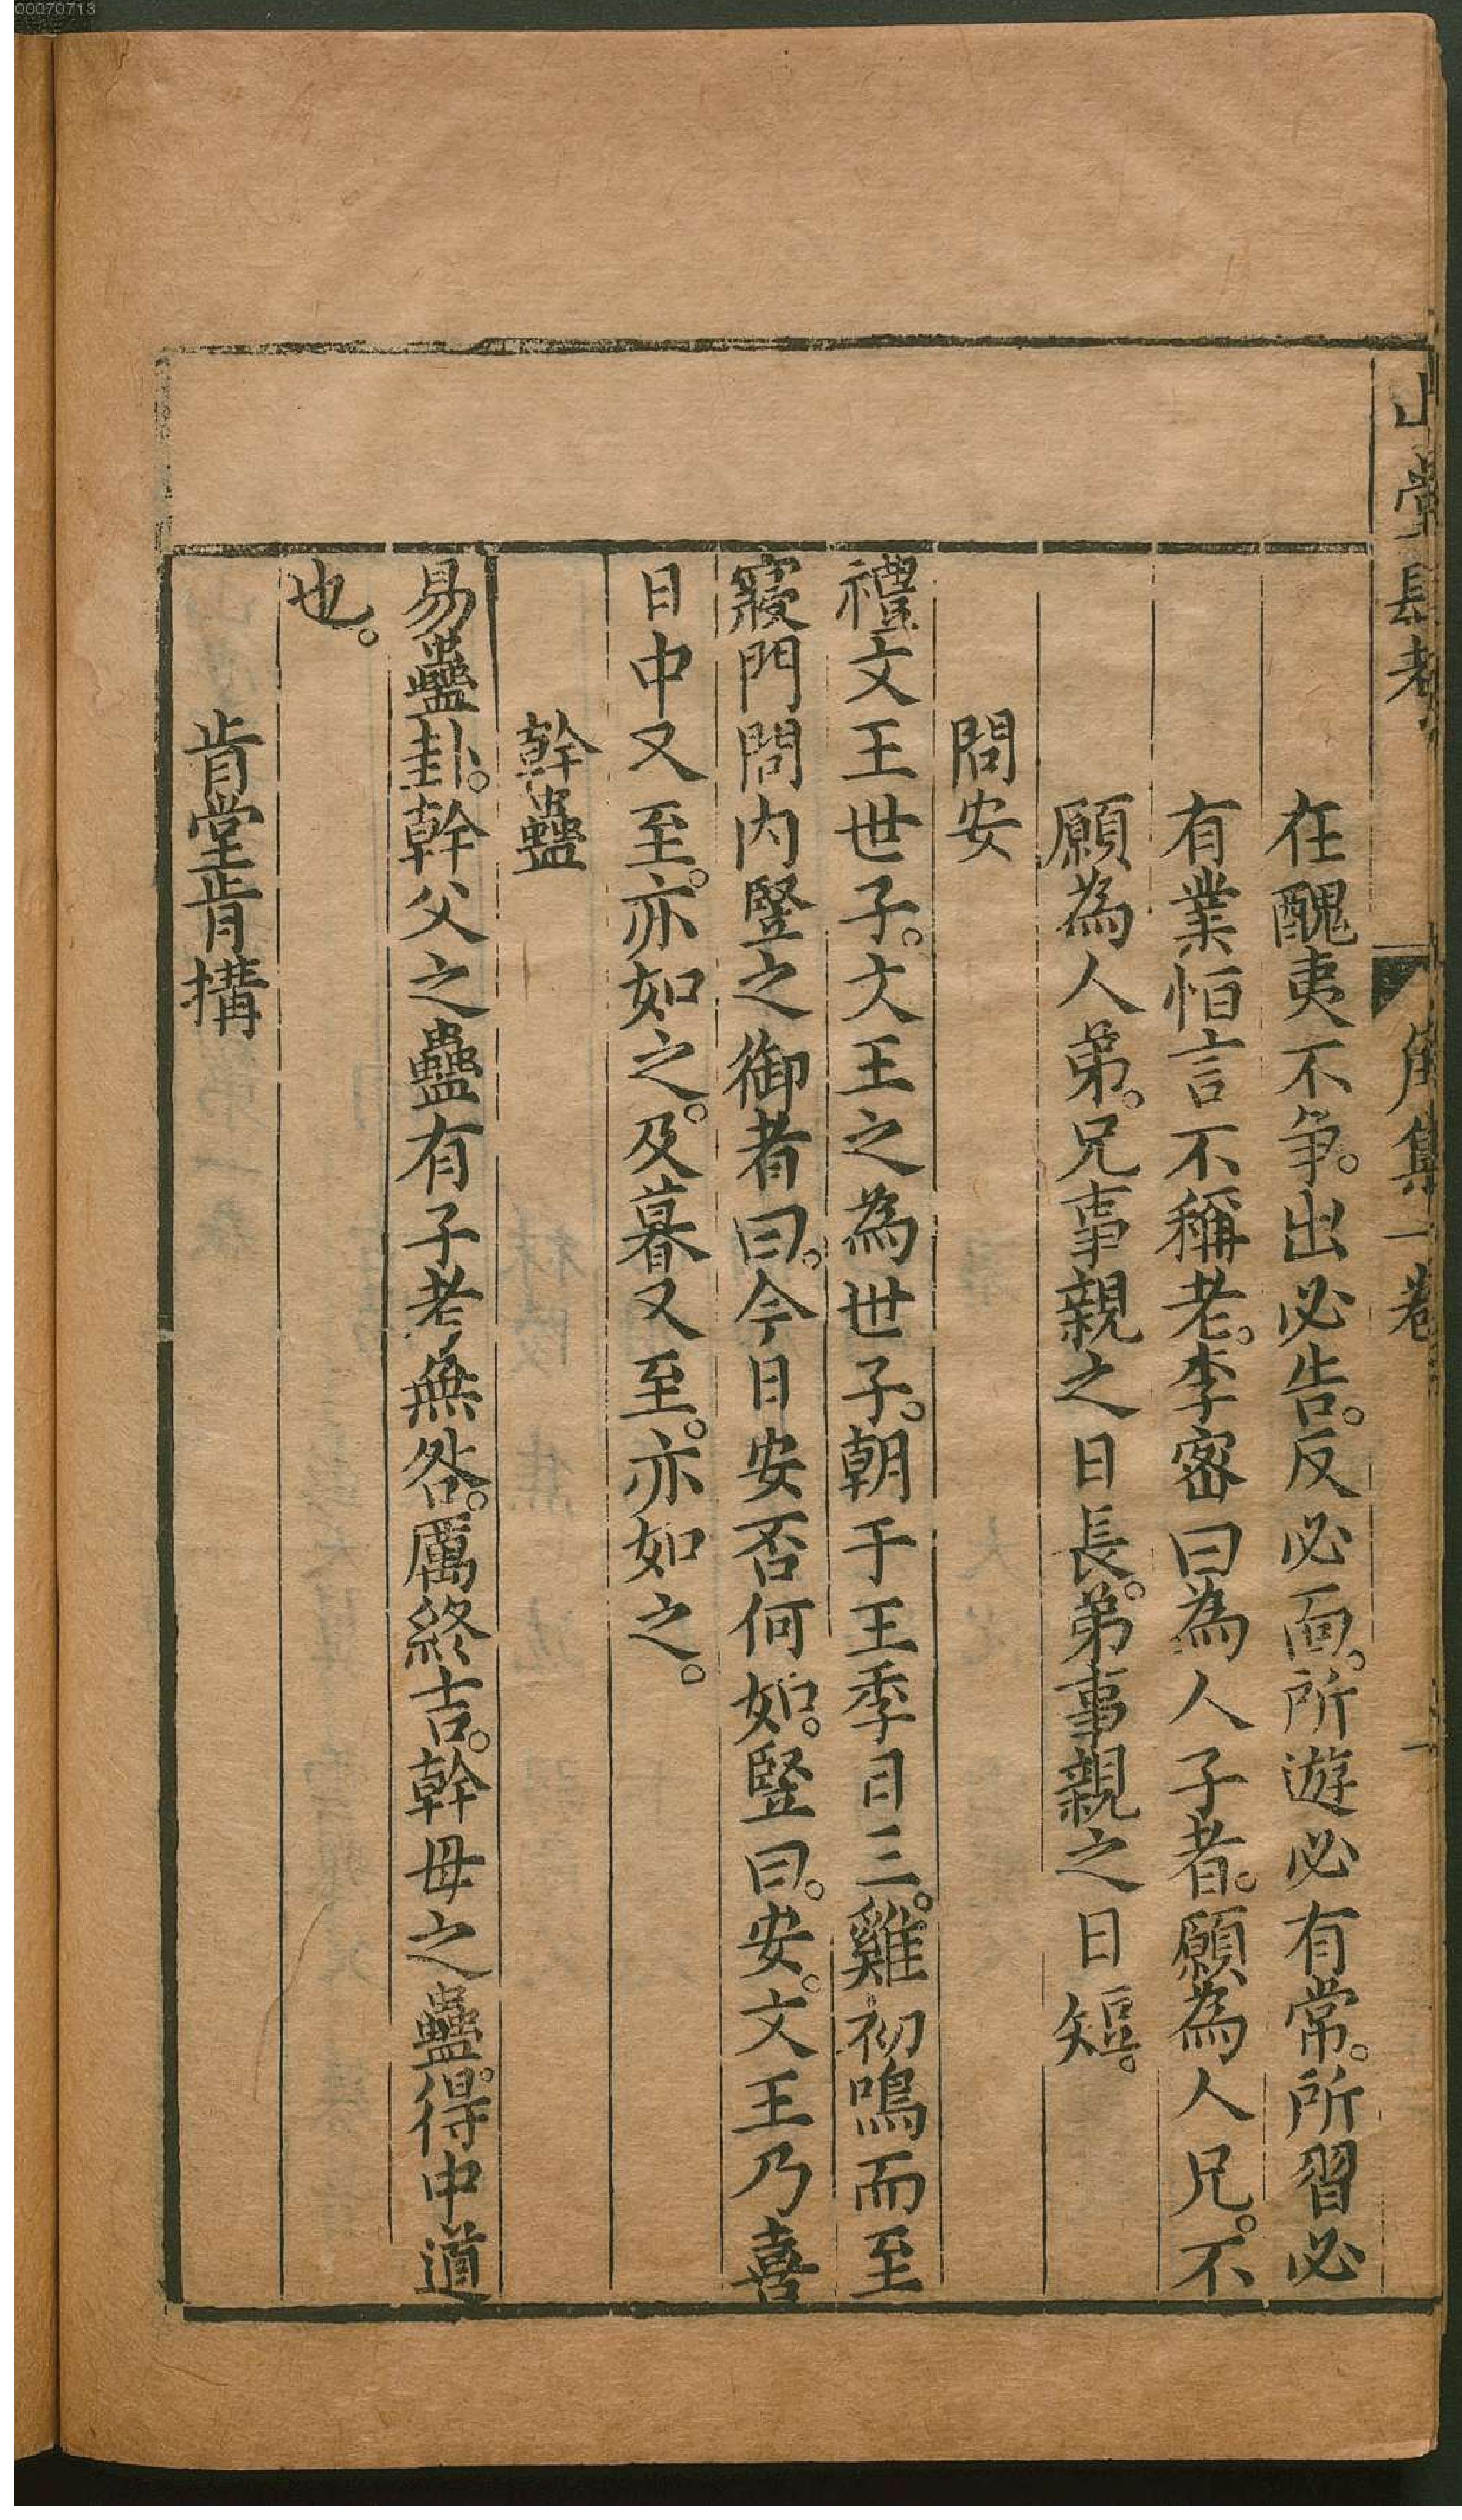 00070713
山堂肆考 角集一卷 一
在醜夷不争。出必告。反必面。所遊必有常。所習必
有業恒言不稱老。李密曰為人子者。願為人兄。不
願為人弟。兄事親之日長。弟事親之日短。
問安
禮文王世子。文王之為世子。朝于王季日三。雞初鳴而至
寢門問内豎之御者曰。今日安否何如。豎曰。安。文王乃喜
日中又至。亦如之。及暮又至。亦如之。
幹蠱
易蠱卦。幹父之蠱有子考無咎。厲終吉。幹毋之蠱。得中道
也。
肯堂肯搆